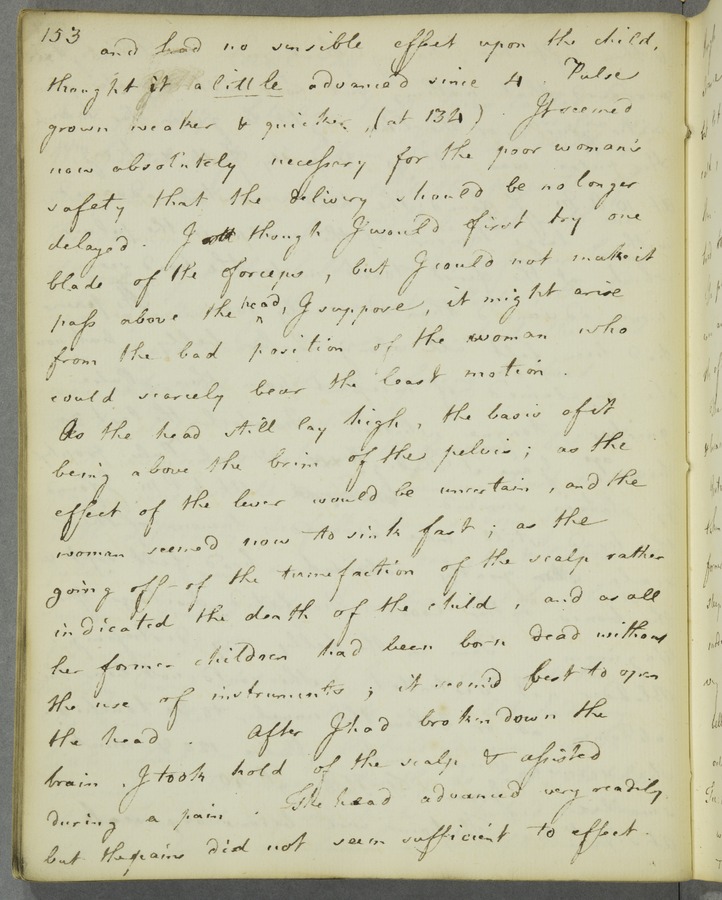 153
and had no sensible effect upon the child,
thought it a little advanced since 4. Pulse
grown weaker & quicker, (at 134). It seemed
now absolutely necessary for the poor woman's
safety that the delivery should be no longer
delayed. I though I would first try one
blade of the forceps, but I could not make it
pass above the head, I suppose, it might arise
from the bad position of the woman who
could scarcely bear the least motion.
As the head still lay high, the basis of it
being above the brim of the pelvis; as the
effect of the lever would be uncertain, and the
woman seemed now to sink fast; as the
going off of the tumefaction of the scalp rather
indicated the death of the child, and as all
her former children had been born dead without
the use of instruments; it seem'd best to open
the head. After I had broken down the
brain, I took hold of the scalp & assisted
during a pain. The head advanced very readily
but the pains did not seem sufficient to effect